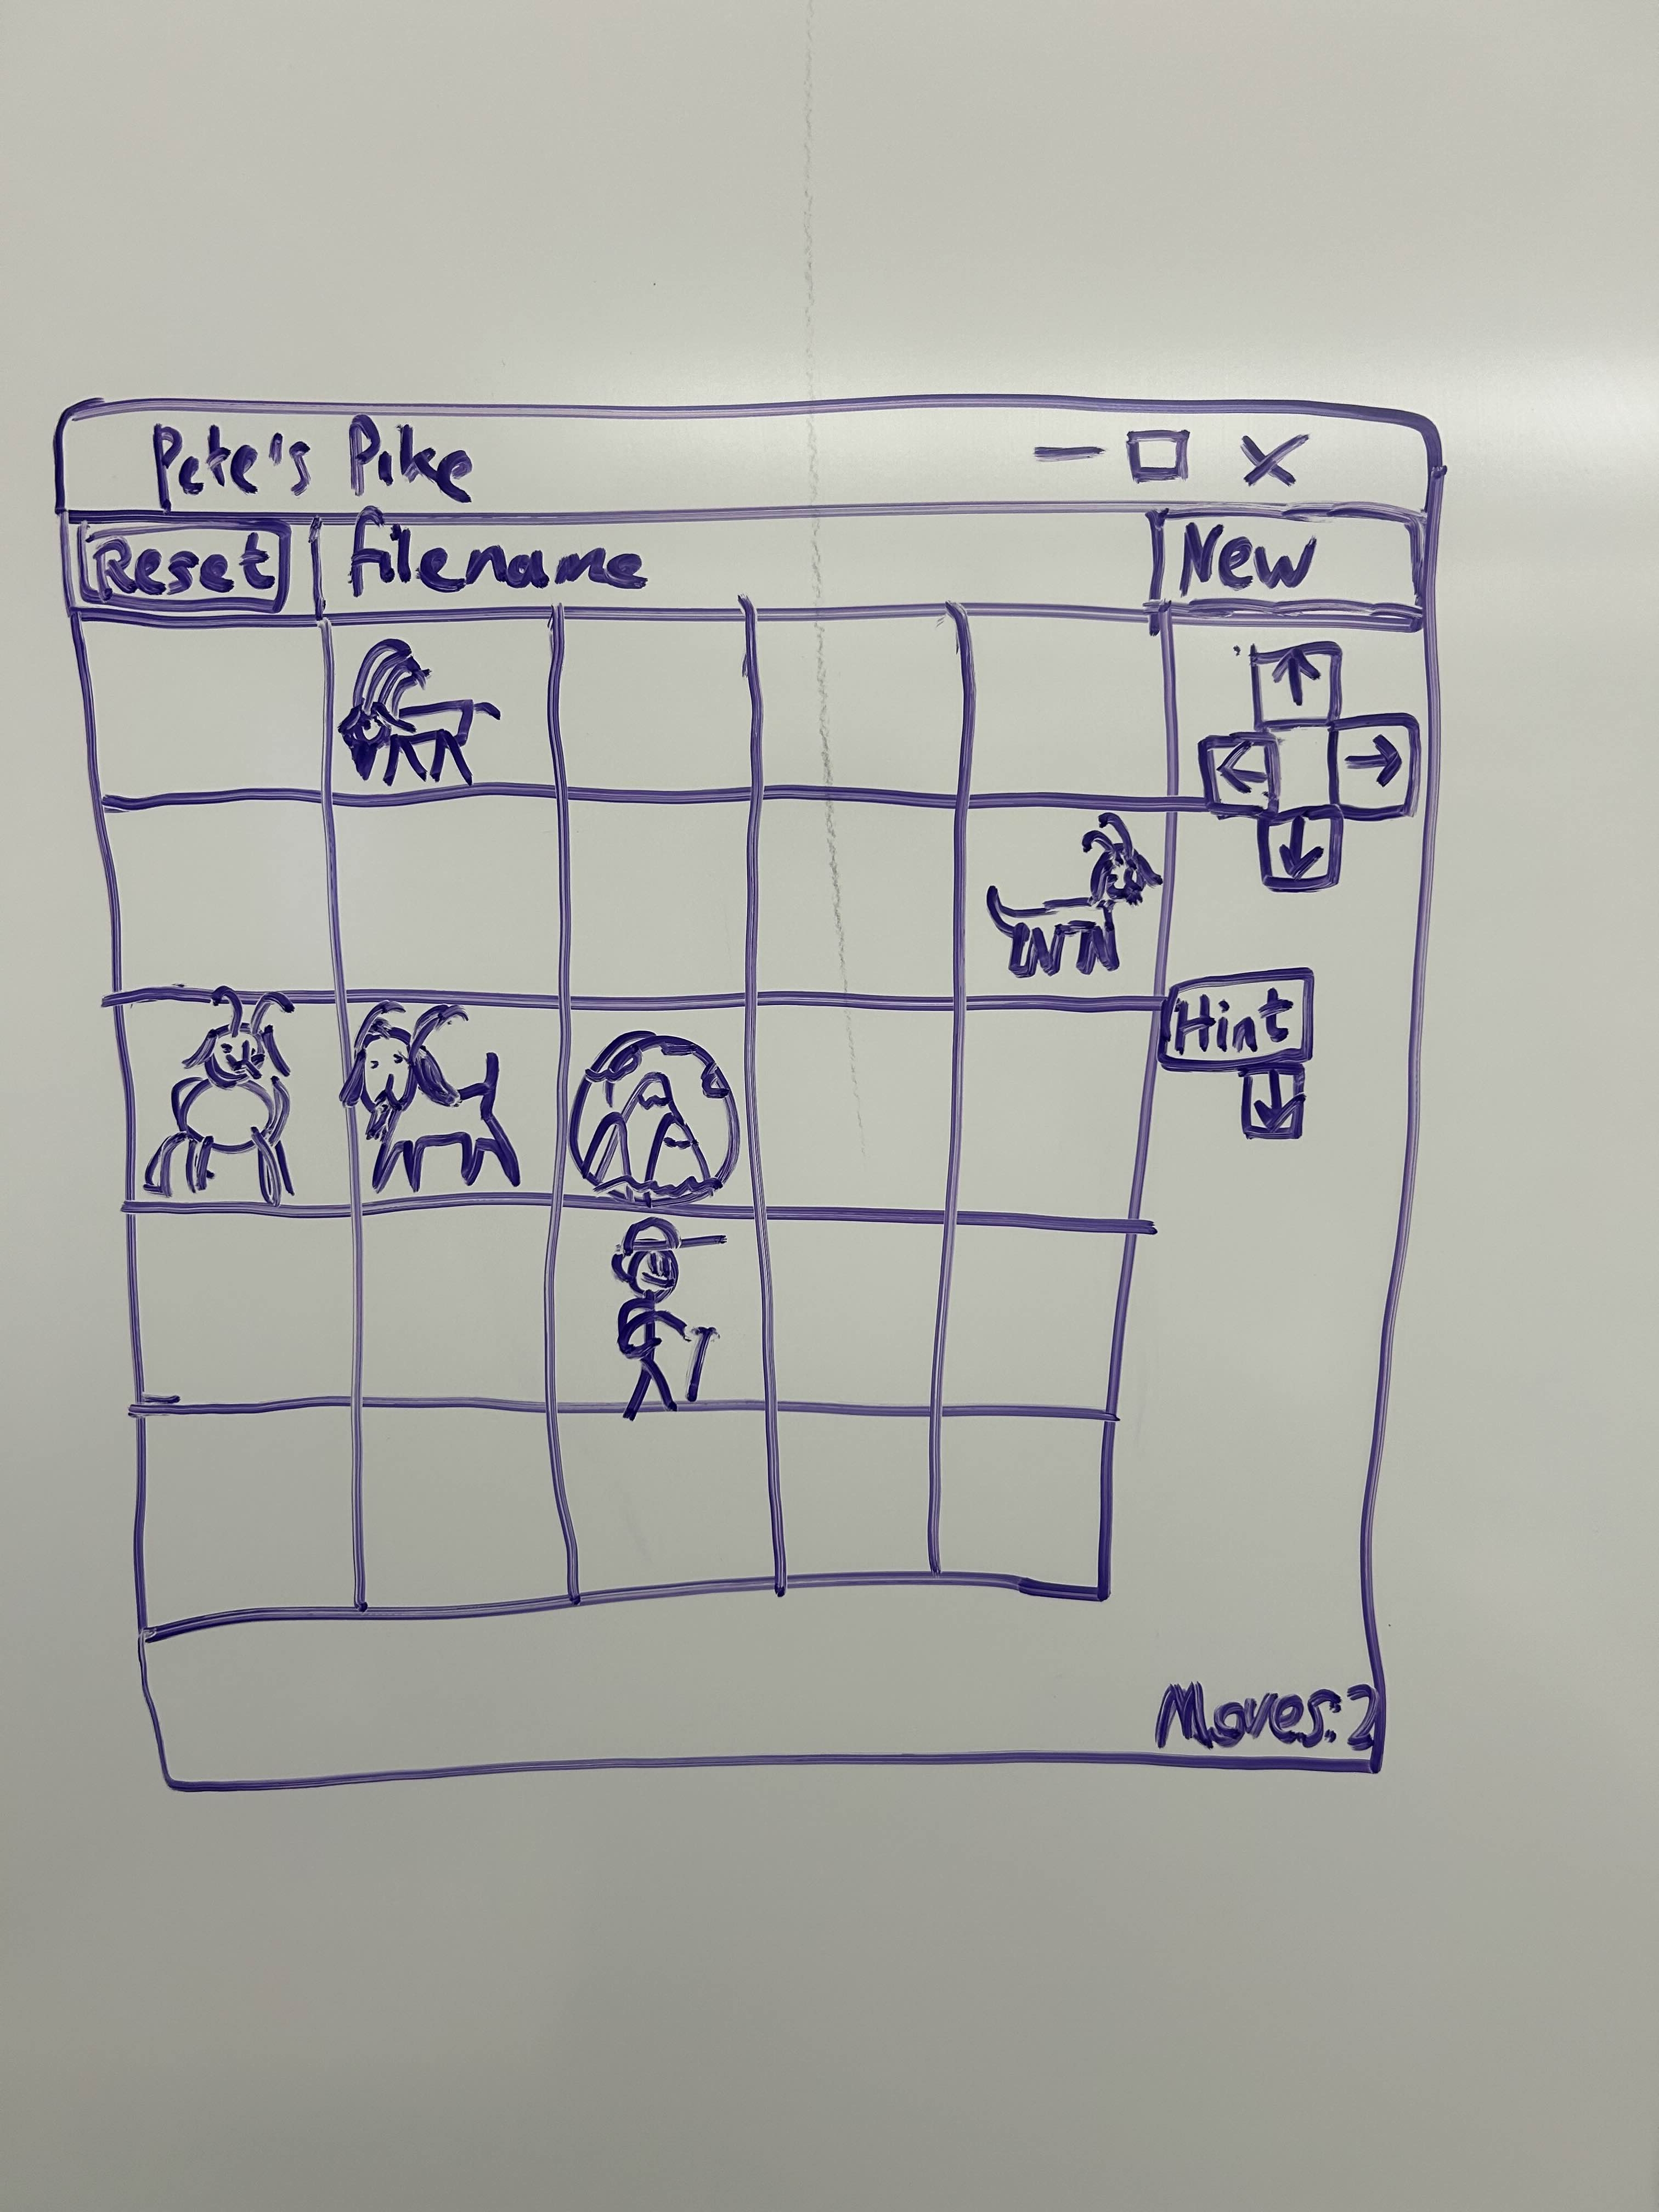 Pete's Pike
Reset filename New
Hint
Moves: 2